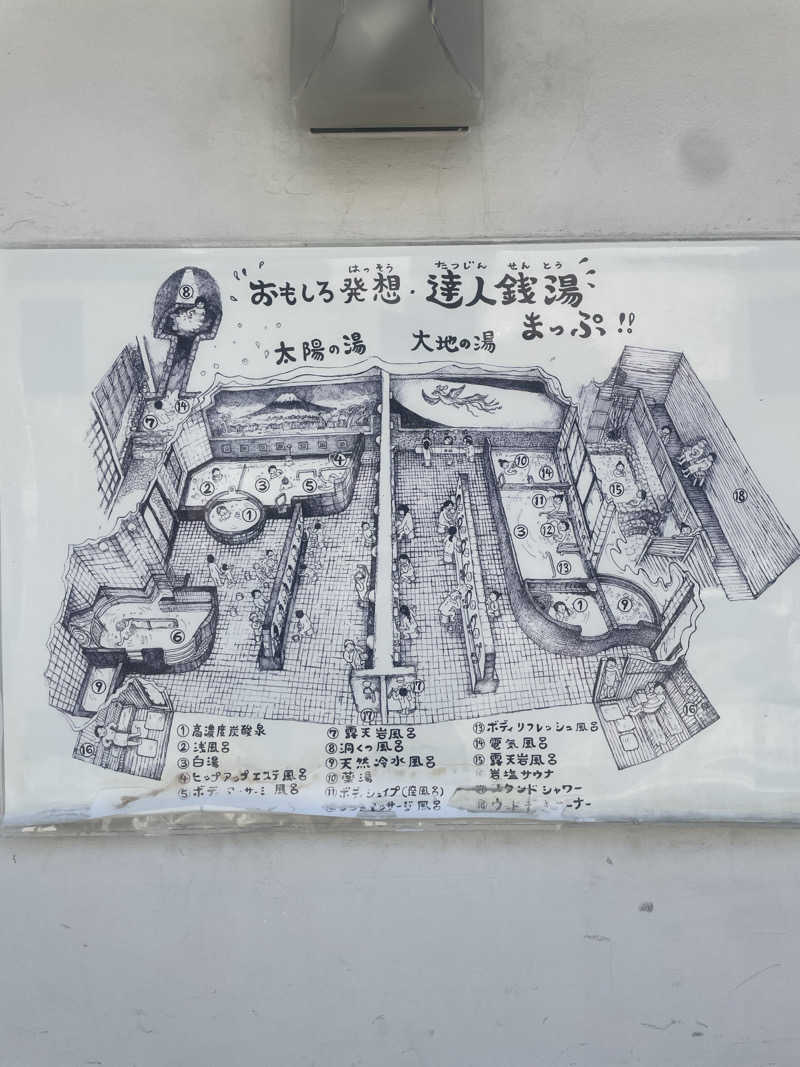 はっそう たつじん せん とう
おもしろ発想・達人銭湯
まっぷ!!
太陽の湯 大地の湯
①高濃度炭酸泉
②浅風呂
③白湯
④ヒップアップエステ風呂
⑤ボディ 風呂
⑦露天岩風呂
⑧洞くつ風呂
⑨天然冷水風呂
⑩薬湯
⑪ボディシェイプ(座風呂)
風呂
⑬ボディリフレッシュ風呂
⑭電気風呂
⑮露天岩風呂
岩塩サウナ
スタンドシャワー
⑧
⑦
⑭
②
③
⑤
④
①
⑥
⑨
⑯
⑰
⑰
⑩
⑭
⑪
③
⑫
⑬
①
⑨
⑮
⑱
⑯